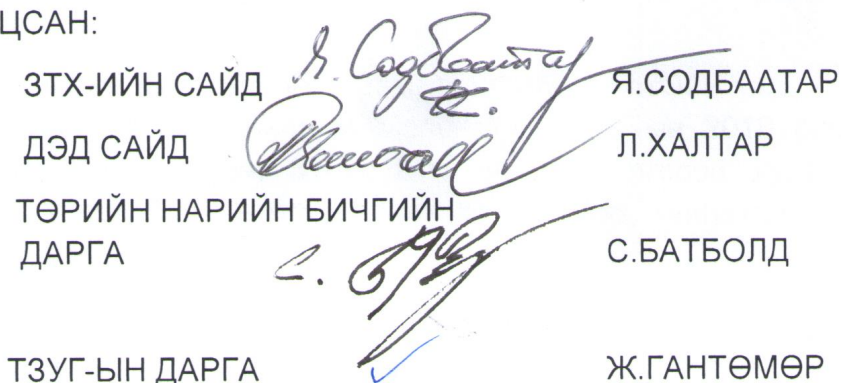 ЦСАН:
ЗТХ-ИЙН САЙД Я. Содбаатар Я.СОДБААТАР
ДЭД САЙД Л.ХАЛТАР
ТӨРИЙН НАРИЙН БИЧГИЙН
ДАРГА С. С.БАТБОЛД
ТЗУГ-ЫН ДАРГА Ж.ГАНТӨМӨР